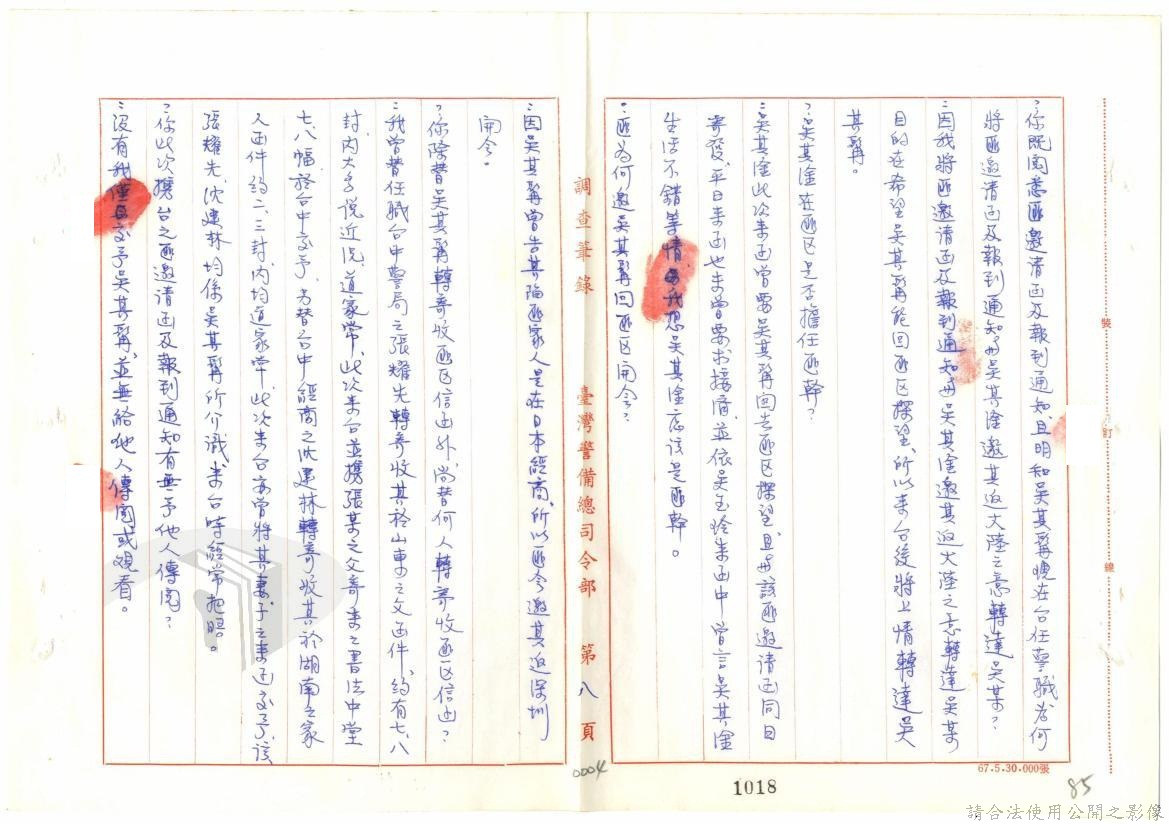 問:你既閱悉匪邀請函及報到通知,且明知吳其髯現在台任警職,為何
將匪邀請函及報到通知與吳其淦邀其返大陸之意轉達吳某?
答:因我將匪邀請函及報到通知與吳其淦邀其返大陸之意轉達吳某
目的在希望吳其髯能回匪區探望,所以來台後將上情轉達吳
其髯。
問:吳其淦在匪區是否擔任匪幹?
答:吳其淦此次來函曾要吳其髯回去匪區探望,且與該匪邀請函同日
寄發,平日來函也未曾要求接濟,並依吳玉玲來函中曾言吳其淦
生活不錯等情,我想吳其淦應該是匪幹。
問:匪為何邀吳其髯回匪區開會?
調查筆錄 臺灣警備總司令部 第八頁
答:因吳其髯曾告其陷匪家人是在日本經商,所以匪會邀其返深圳
開會。
問:你除替吳其髯轉寄收匪區信函外,尚替何人轉寄收匪區信函?
答:我曾替任職台中警局之張耀先轉寄收其於山東之父函件,約有七、八
封,內大多說近況,道家常,此次來台並攜張某之父寄來之書法中堂
七、八幅,於台中交予,另替台中經商之沈建林轉寄收其於湖南之家
人函件,約二、三封,內均道家常,此次來台亦曾將其妻、子之來函交予,該
張耀先、沈建林均係吳其髯所介識,來台時經常把晤。
問:你此次攜台之匪邀請函及報到通知有無予他人傳閱?
答:沒有,我僅交予吳其髯,並無給他人傳閱或觀看。
裝
訂
線
67.5.30.000張
0004
1018
85
請合法使用公開之影像